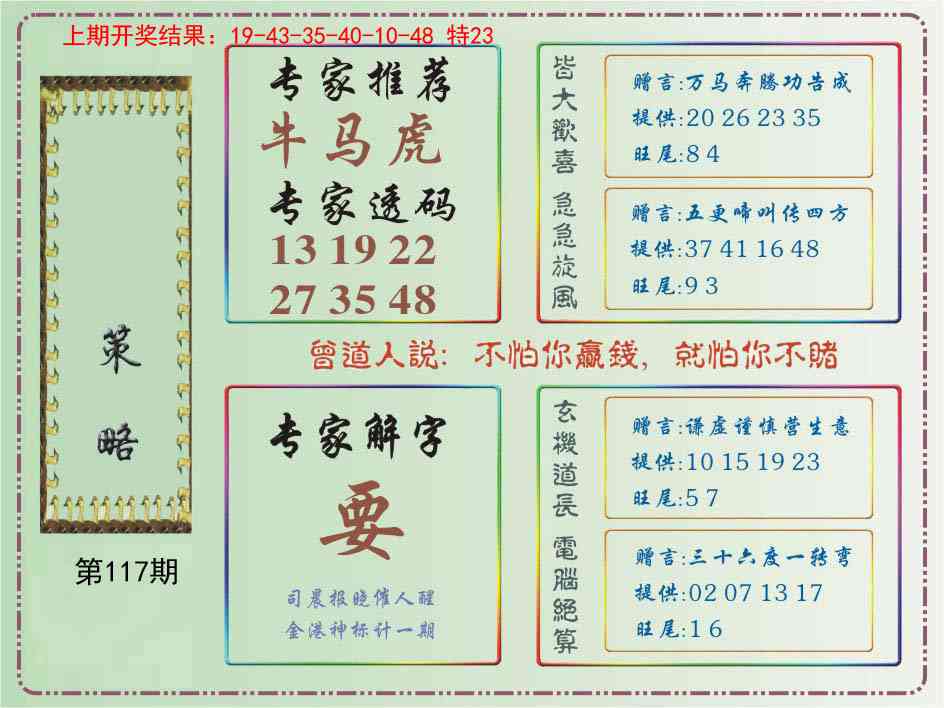 上期开奖结果：19-43-35-40-10-48 特23
策
略
第117期
专家推荐
牛马虎
专家透码
13 19 22
27 35 48
皆大歡喜
赠言:万马奔腾功告成
提供:20 26 23 35
旺尾:8 4
急急旋風
赠言:五更啼叫传四方
提供:37 41 16 48
旺尾:9 3
曾道人説：不怕你贏錢，就怕你不賭
专家解字
要
司晨报晓催人醒
金港神标计一期
玄機道長
赠言:谦虚谨慎营生意
提供:10 15 19 23
旺尾:5 7
電腦絕算
赠言:三十六度一转弯
提供:02 07 13 17
旺尾:1 6